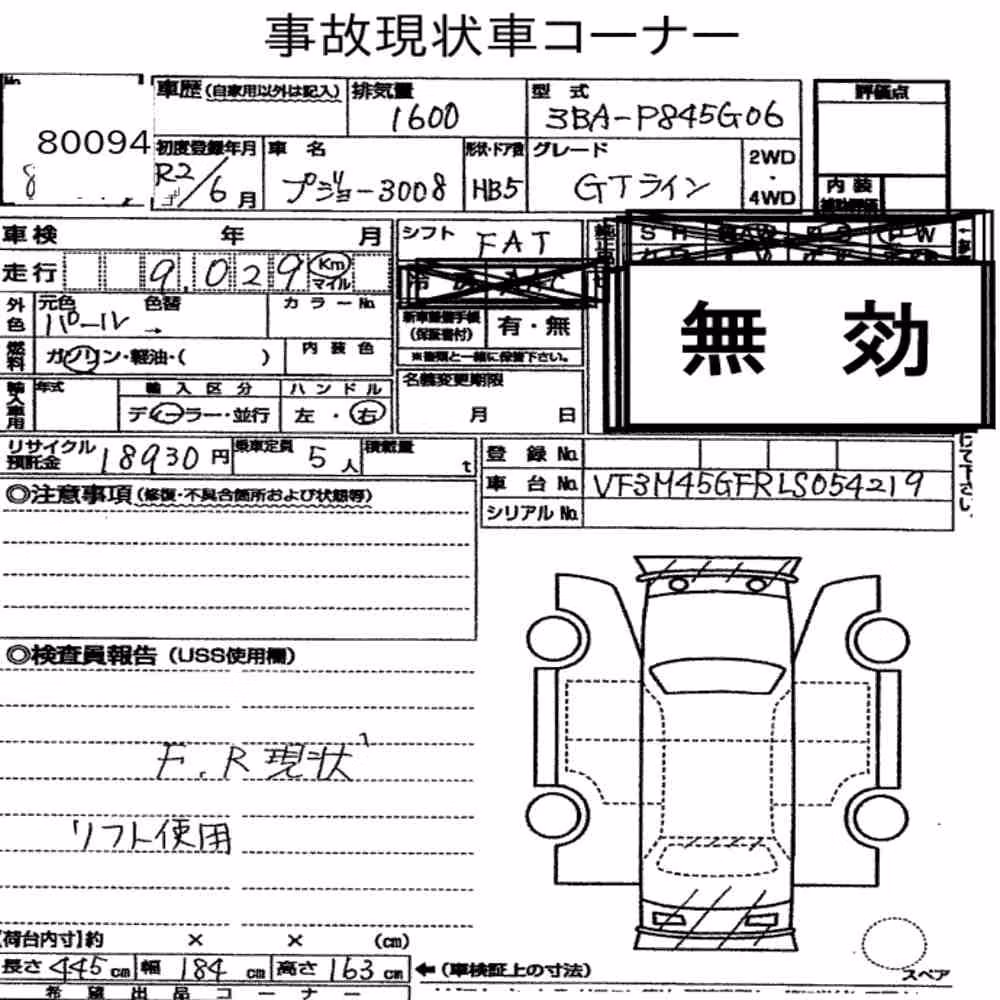 事故現状車コーナー
No.
80094
8
車歴(自家用以外は記入)
排気量
1600
型 式
3BA-P845G06
評価点
初度登録年月
R2/6月
車 名
プジョー3008
形状・ドア数
HB5
グレード
GTライン
2WD
・
4WD
内 装
補助評価
車 検 年 月
シフト FAT
走 行 9,029 Km マイル
外色
元色 色替
パール →
カラーNo.
新車整備手帳
(保証書付)
有・無
※書類と一緒に保管下さい。
無 効
燃料
ガソリン・軽油・( )
内 装 色
輸入車用
年式
輸 入 区 分
ディーラー・並行
ハ ン ド ル
左 ・ 右
名義変更期限
月 日
リサイクル
預託金
18930円
乗車定員
5人
積載量
t
登 録 No.
車 台 No. VF3M45GFRLS054219
シリアル No.
けて下さい。
◎注意事項(修復・不具合箇所および状態等)
◎検査員報告(USS使用欄)
F.R現状
リフト使用
【荷台内寸】約 × × (cm)
長さ 445cm 幅 184cm 高さ 163cm ←(車検証上の寸法)
スペア
希 望 出 品 コ ー ナ ー